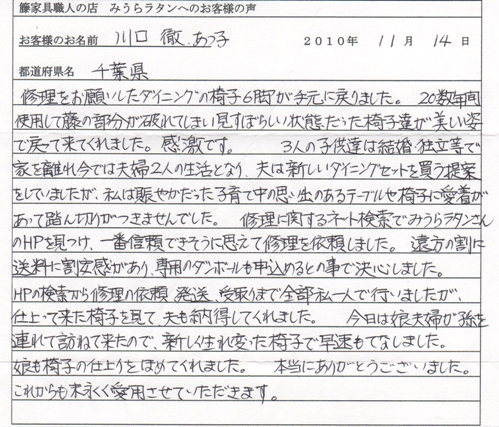 籐家具職人の店　みうらラタンへのお客様の声
お客様のお名前　川口 徹、あつ子　2010年 11月 14日
都道府県名　千葉県
修理をお願いしたダイニングの椅子6脚が手元に戻りました。20数年間
使用して藤の部分が破れてしまい見すぼらしい状態だった椅子達が美しい姿
で戻って来てくれました。感激です。　3人の子供達は結婚・独立等で
家を離れ今では夫婦2人の生活となり、夫は新しいダイニングセットを買う提案
をしていましたが、私は賑やかだった子育て中の思い出のあるテーブルや椅子に愛着が
あって踏ん切りがつきませんでした。　修理に関するネット検索でみうらラタンさん
のHPを見つけ、一番信頼できそうに思えて修理を依頼しました。遠方の割に
送料に割安感があり、専用のダンボールも申込めるとの事で決心しました。
HPの検索から修理の依頼、発送、受取りまで全部私一人で行いましたが、
仕上って来た椅子を見て、夫も納得してくれました。　今日は娘夫婦が孫を
連れて訪ねて来たので、新しく生れ変った椅子で早速もてなしました。
娘も椅子の仕上りをほめてくれました。　本当にありがとうございました。
これからも末永く愛用させていただきます。